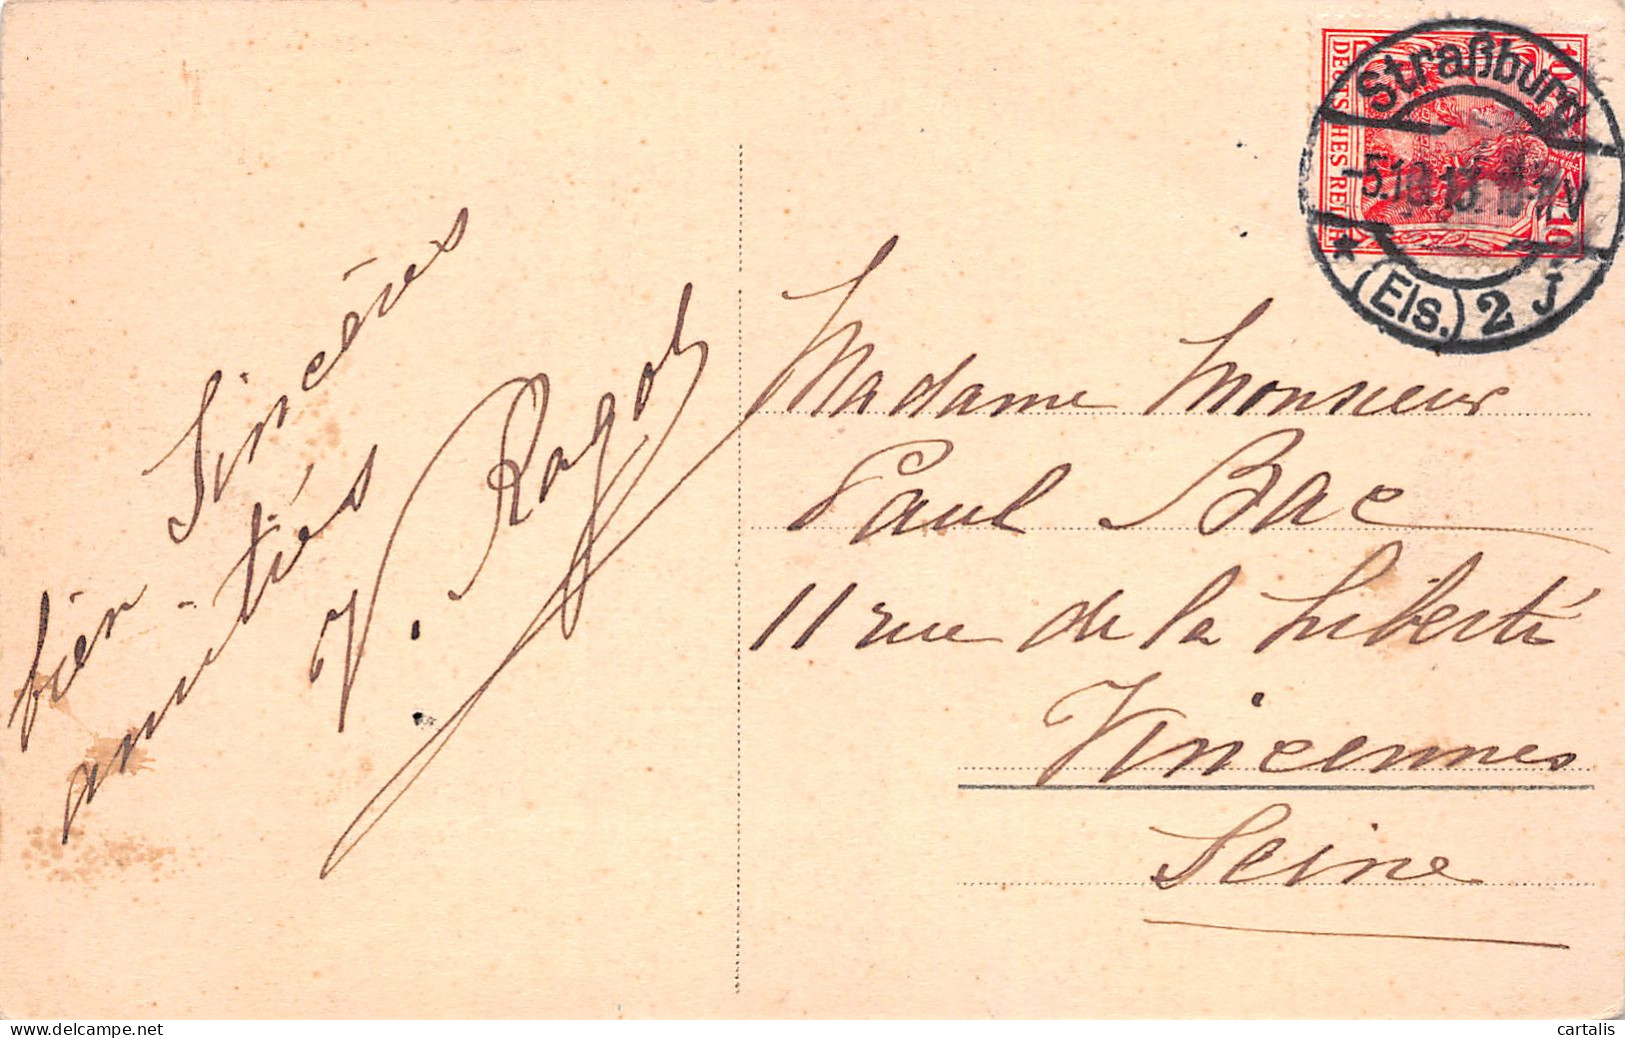 Sincères
bien
amitiés
V. Ragot
Straßburg
5.10.13.
(Els.) 2 J
DEUTSCHES REICH
10 10
Madame Monsieur
Paul Bac
11 rue de la Liberté
Vincennes
Seine
delcampe.net
cartalis